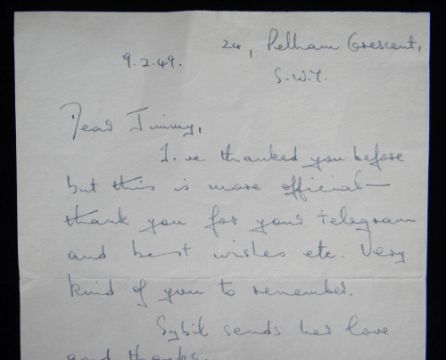 24, Pelham Crescent,
9.2.49.
S.W.7.
Dear Jimmy,
I've thanked you before
but this is more official—
thank you for your telegram
and best wishes etc. Very
kind of you to remember.
Sybil sends her love
and thanks.